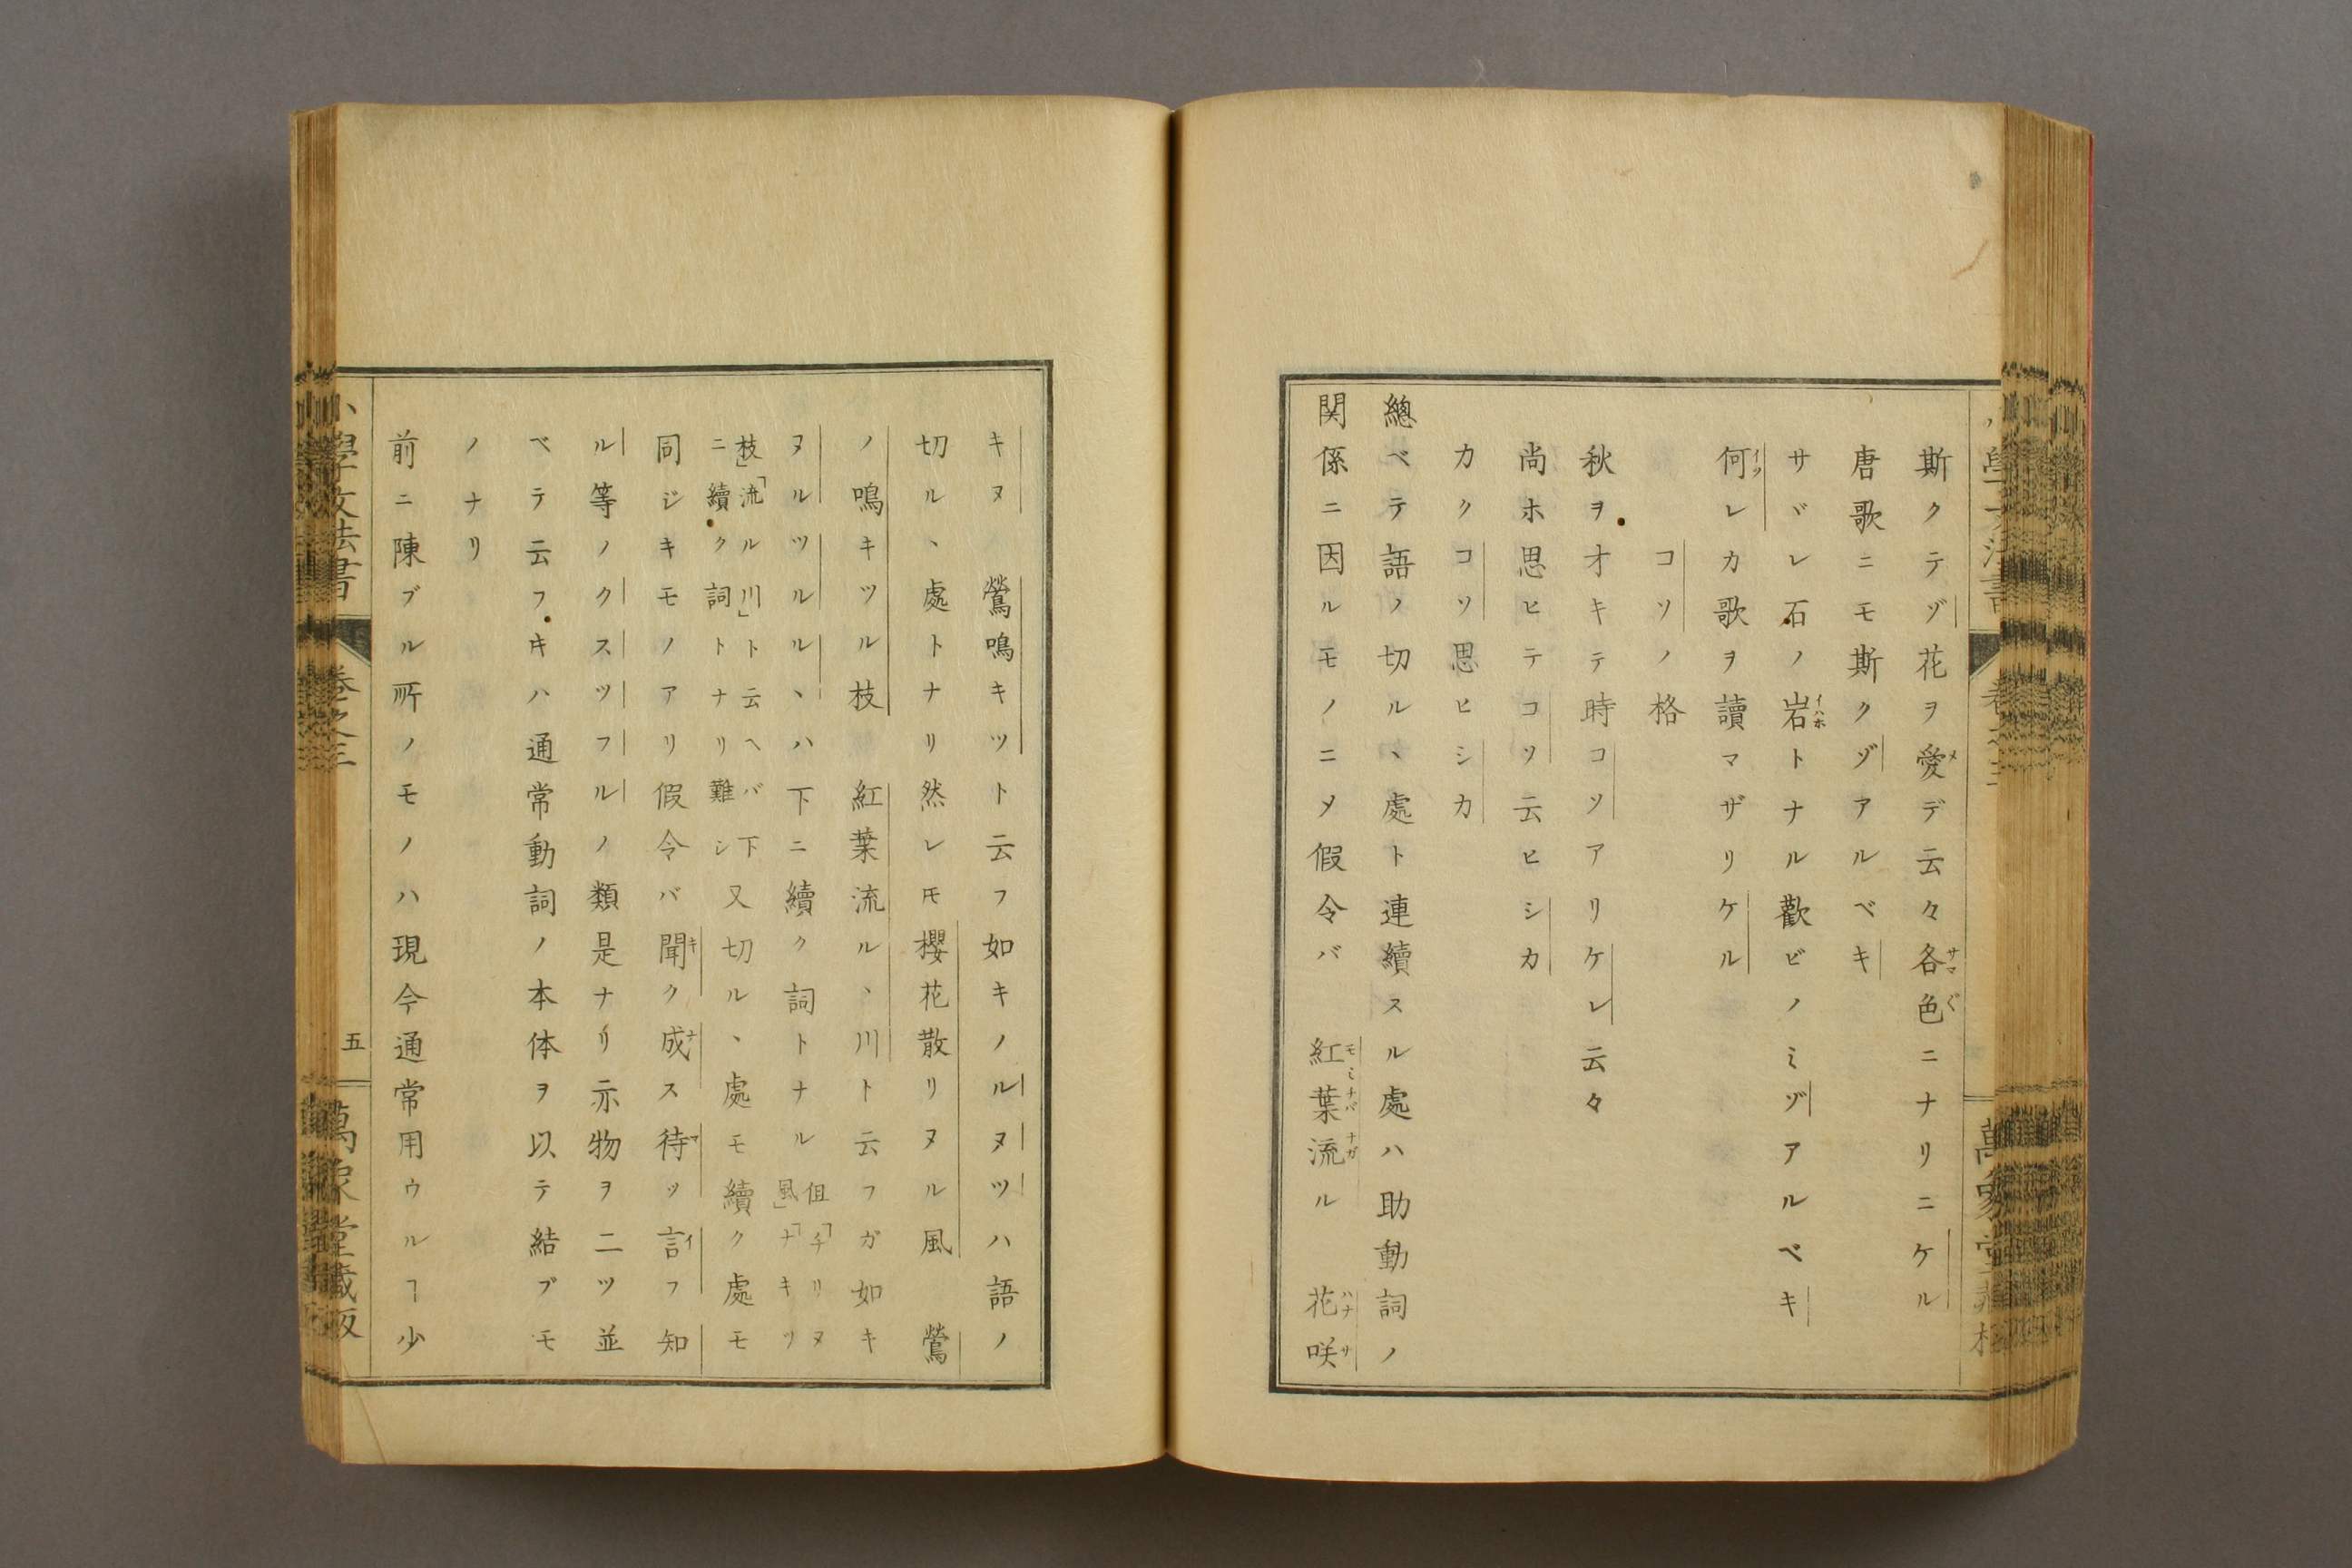 斯クテゾ花ヲ愛デ云々各色ニナリニケル
唐歌ニモ斯クゾアルベキ
サヾレ石ノ岩トナル歡ビノミゾアルベキ
何レカ歌ヲ讀マザリケル
コソノ格
秋ヲオキテ時コソアリケレ云々
尚ホ思ヒテコソ云ヒシカ
カクコソ思ヒシカ
總ベテ語ノ切ルヽ處ト連續スル處ハ助動詞ノ
関係ニ因ルモノニメ假令バ 紅葉流ル 花咲
キヌ 鶯鳴キツト云フ如キノルヌツハ語ノ
切ルヽ處トナリ然レ𪜈櫻花散リヌル風 鶯
ノ鳴キツル枝 紅葉流ルヽ川ト云フガ如キ
ヌルツルルヽハ下ニ續ク詞トナル 但「チリヌ風」「ナキツ
枝」「流ル川」ト云ヘバ下ニ續ク詞トナリ難シ 又切ルヽ處モ續ク處モ
同ジキモノアリ假令バ聞ク成ス待ッ言フ知
ル等ノクスツフルノ類是ナリ亦物ヲ二ツ並
ベテ云フ𪜃ハ通常動詞ノ本体ヲ以テ結ブモ
ノナリ
前ニ陳ブル所ノモノハ現今通常用ウルヿ少
小學文法書
卷之三
五
萬象堂藏版